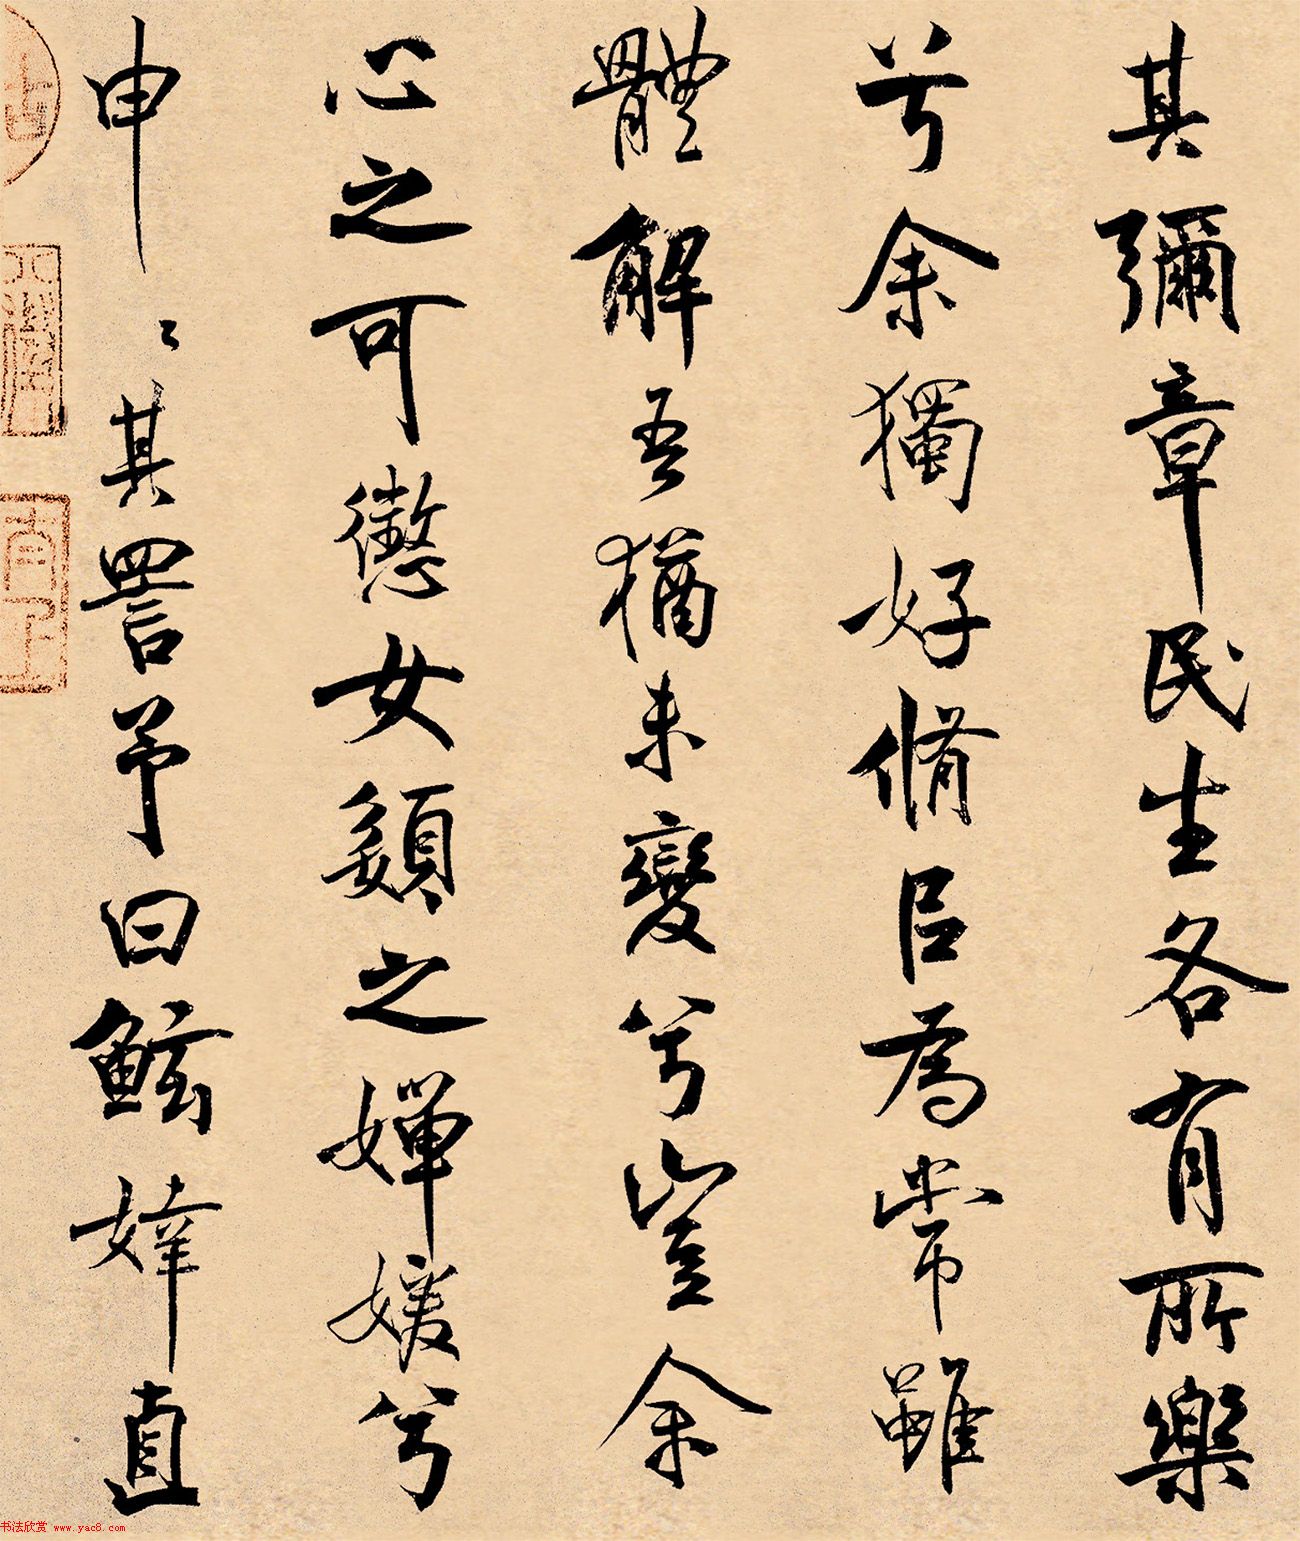 其彌章民生各有所樂
兮余獨好脩㠯為常雖
體解吾猶未變兮豈余
心之可懲女嬃之嬋媛兮
申〻其詈予曰鮌婞直
书法欣赏 www.yac8.com